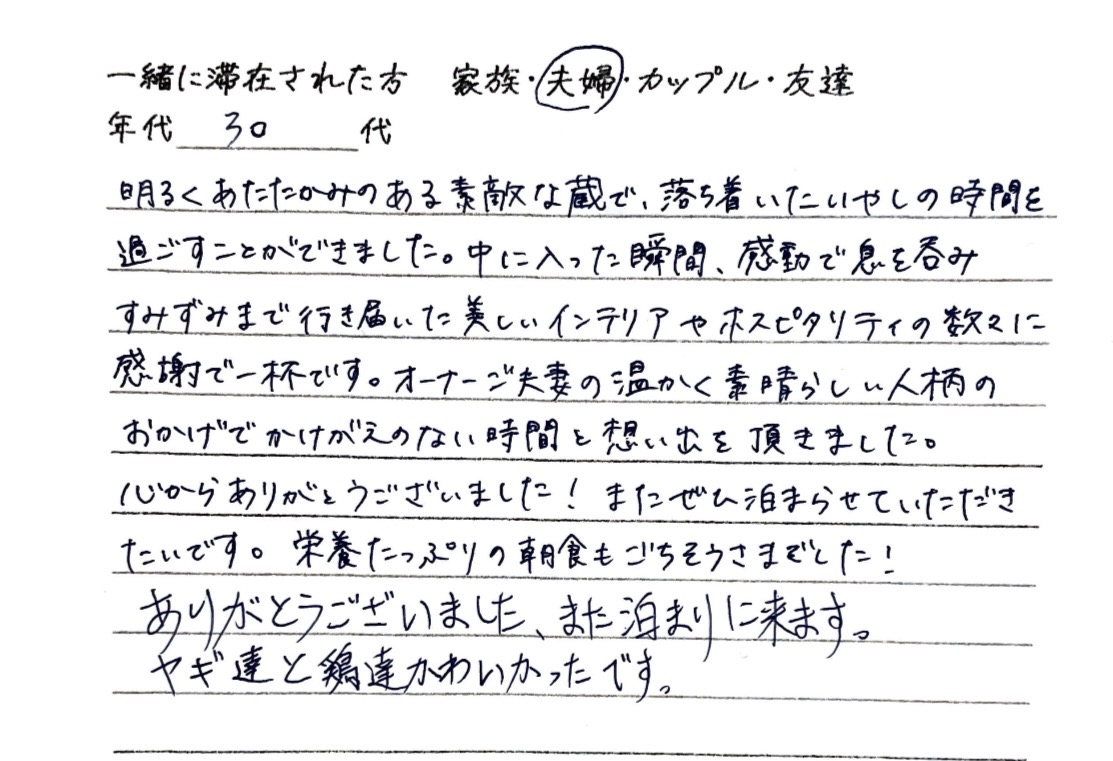 一緒に滞在された方 家族・夫婦・カップル・友達
年代 30 代
明るくあたたかみのある素敵な蔵で、落ち着いたいやしの時間を
過ごすことができました。中に入った瞬間、感動で息を呑み
すみずみまで行き届いた美しいインテリアやホスピタリティの数々に
感謝で一杯です。オーナーご夫妻の温かく素晴らしい人柄の
おかげでかけがえのない時間と想い出を頂きました。
心からありがとうございました！またぜひ泊まらせていただき
たいです。栄養たっぷりの朝食もごちそうさまでした！
ありがとうございました、また泊まりに来ます。
ヤギ達と鶏達かわいかったです。